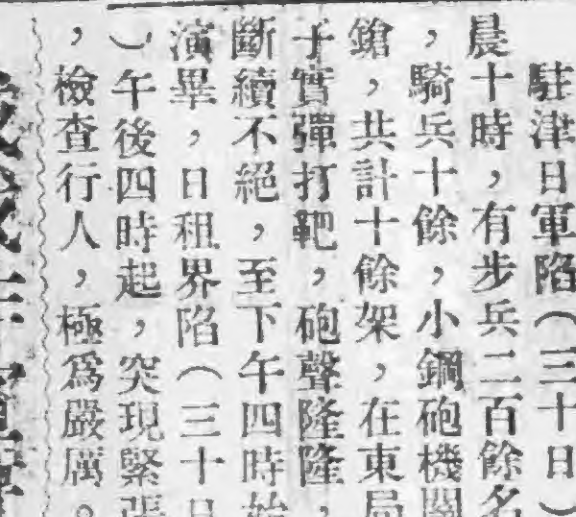 駐津日軍陷（三十日）
晨十時，有步兵二百餘名
，騎兵十餘，小鋼砲機關
鎗，共計十餘架，在東局
子實彈打靶，砲聲隆隆，
斷續不絕，至下午四時始
演畢，日租界陷（三十日
）午後四時起，突現緊張
，檢查行人，極爲嚴厲。